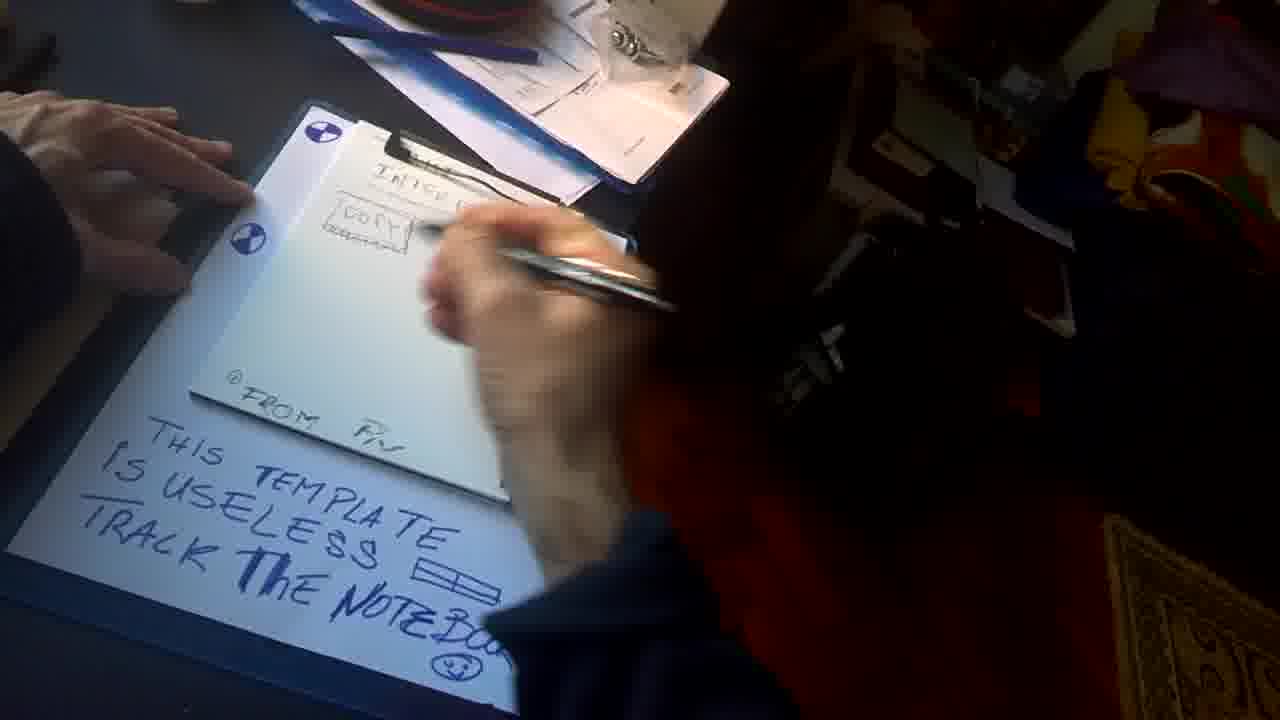 COPY
FROM P/N
THIS TEMPLATE
IS USELESS
TRACK THE NOTEBOO